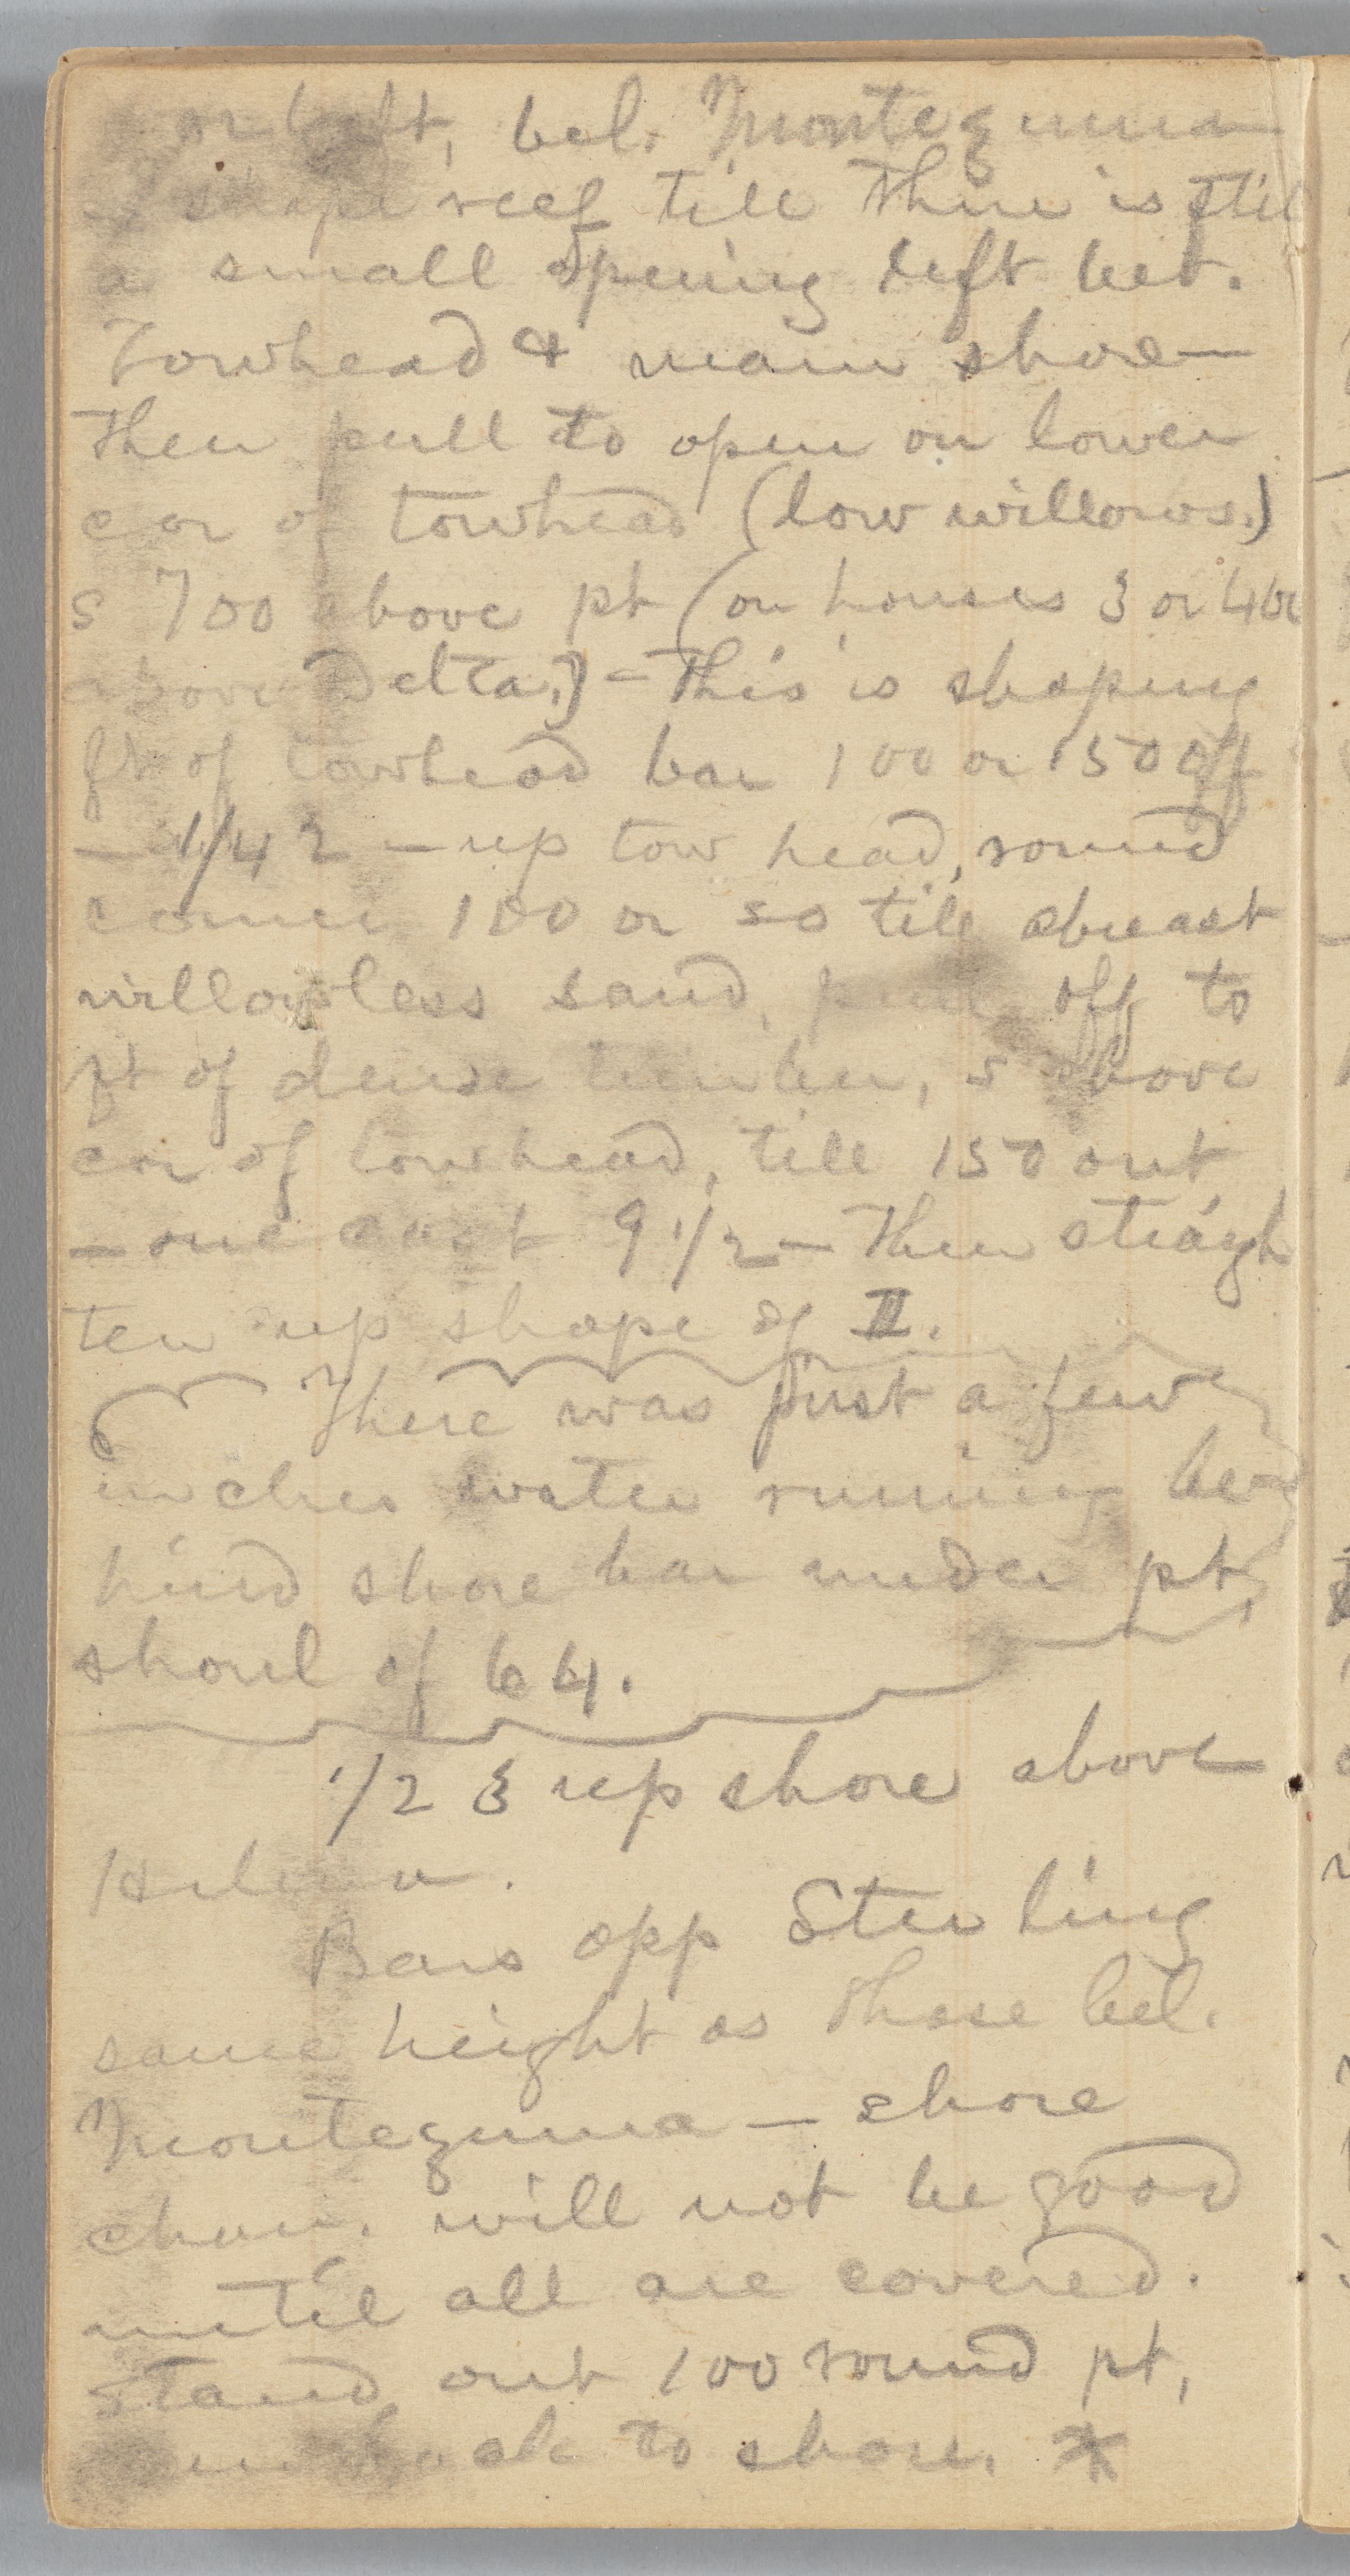 or left, bel. Montezuma
shape reef till there is stil
a small opening left bet.
Towhead & main shore—
Then pull to open on lower
cor of towhead (low willows.)
s 700 above pt (on houses 3 or 400
above Delta.) – This is shaping
ft of towhead bar 100 or 150 off
— 1/4 2 — up tow head, round
corner 100 or so till abreast
willowless sand, pull off to
pt of dense timber, s above
cor of towhead, till 150 out
— one cast 9 1/2 — Then straigh
ten up shape of II.
There was just a few
inches water running be-
hind shore bar under pt,
shoul of 64.
1/2 3 up shore above
Helena.
Bars opp Sterling
same height as those bel.
Montezuma — shore
chan. will not be good
until all are covered.
Stand out 100 round pt,
back to shore. *